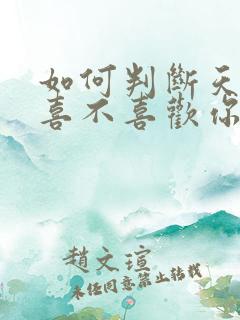 如何判斷天
喜不喜歡你
趙文瑄
未任同意禁止转载